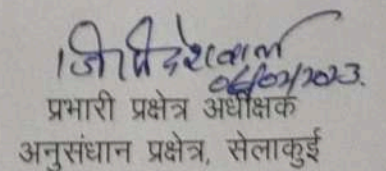 06/02/2023.
प्रभारी प्रक्षेत्र अधीक्षक
अनुसंधान प्रक्षेत्र, सेलाकुई